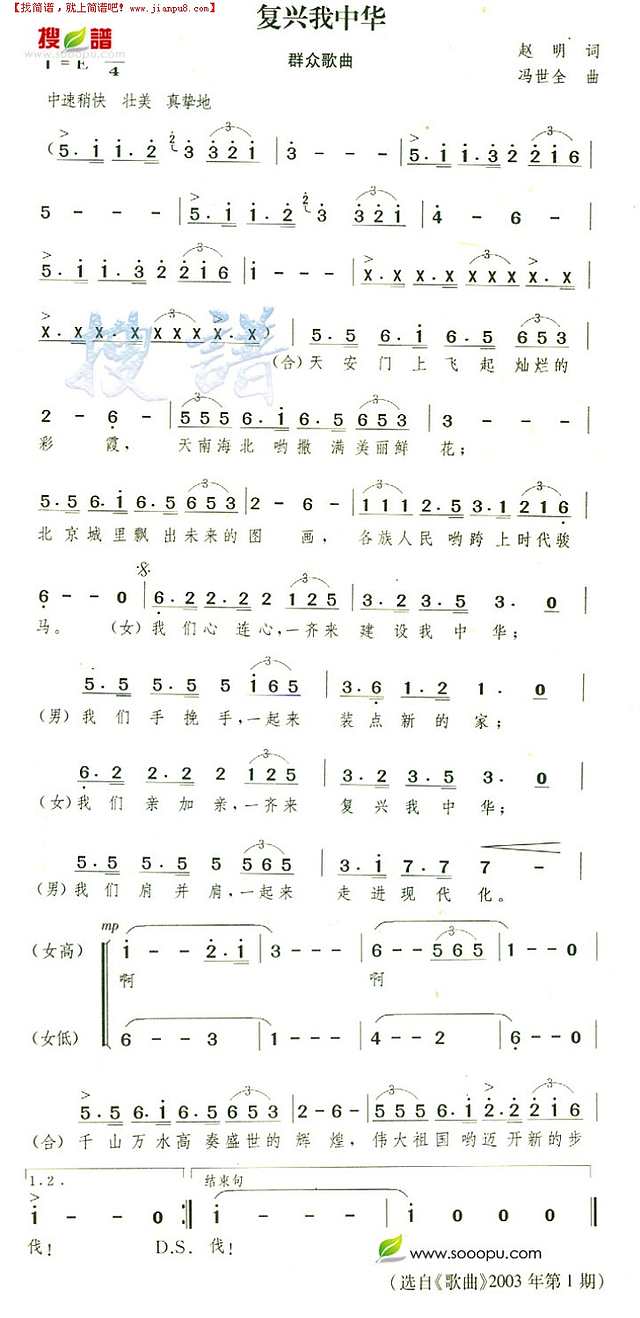 【找简谱，就上简谱吧！www.jianpu8.com】
复兴我中华
搜谱
www.sooopu.com
1=E 4
群众歌曲
赵明 词
冯世全 曲
中速稍快 壮美 真挚地
(5.1 1.2 2 3 321 | 3 - - - | 5.1 1.3 2 216 |
5 - - - | 5.1 1.2 2 3 321 | 4 - 6 - |
5.1 1.3 2 216 | 1 - - - | X.X X.X X XXX X.X |
X.X X.X X XXX X.X) | 5.5 6.1 6.5 653 |
(合)天安门上飞起灿烂的
2 - 6 - | 555 6.1 6.5 653 | 3 - - - |
彩霞，天南海北哟撒满美丽鲜花；
5.5 6.1 6.5 653 | 2 - 6 - | 111 2.5 3.1 216 |
北京城里飘出未来的图画，各族人民哟跨上时代骏
6 - - 0 | 6.2 2.2 2 125 | 3.2 3.5 3. 0 |
马。(女)我们心连心，一齐来建设我中华；
5.5 5.5 5 165 | 3.6 1.2 1. 0 |
(男)我们手挽手，一起来装点新的家；
6.2 2.2 2 125 | 3.2 3.5 3. 0 |
(女)我们亲加亲，一齐来复兴我中华；
5.5 5.5 5 565 | 3.1 7.7 7 - |
(男)我们肩并肩，一起来走进现代化。
mp
(女高) 1 - - 2.1 | 3 - - - | 6 - - 565 | 1 - - 0 |
啊 啊
(女低) 6 - - 3 | 1 - - - | 4 - - 2 | 6 - - 0 |
5.5 6.1 6.5 653 | 2 - 6 - | 555 6.1 2.2 216 |
(合)千山万水高奏盛世的辉煌，伟大祖国哟迈开新的步
1.2. 结束句
1 - - 0 :| 1 - - - | 1 0 0 0 ‖
伐！ D.S. 伐！
www.sooopu.com
(选自《歌曲》2003年第1期)